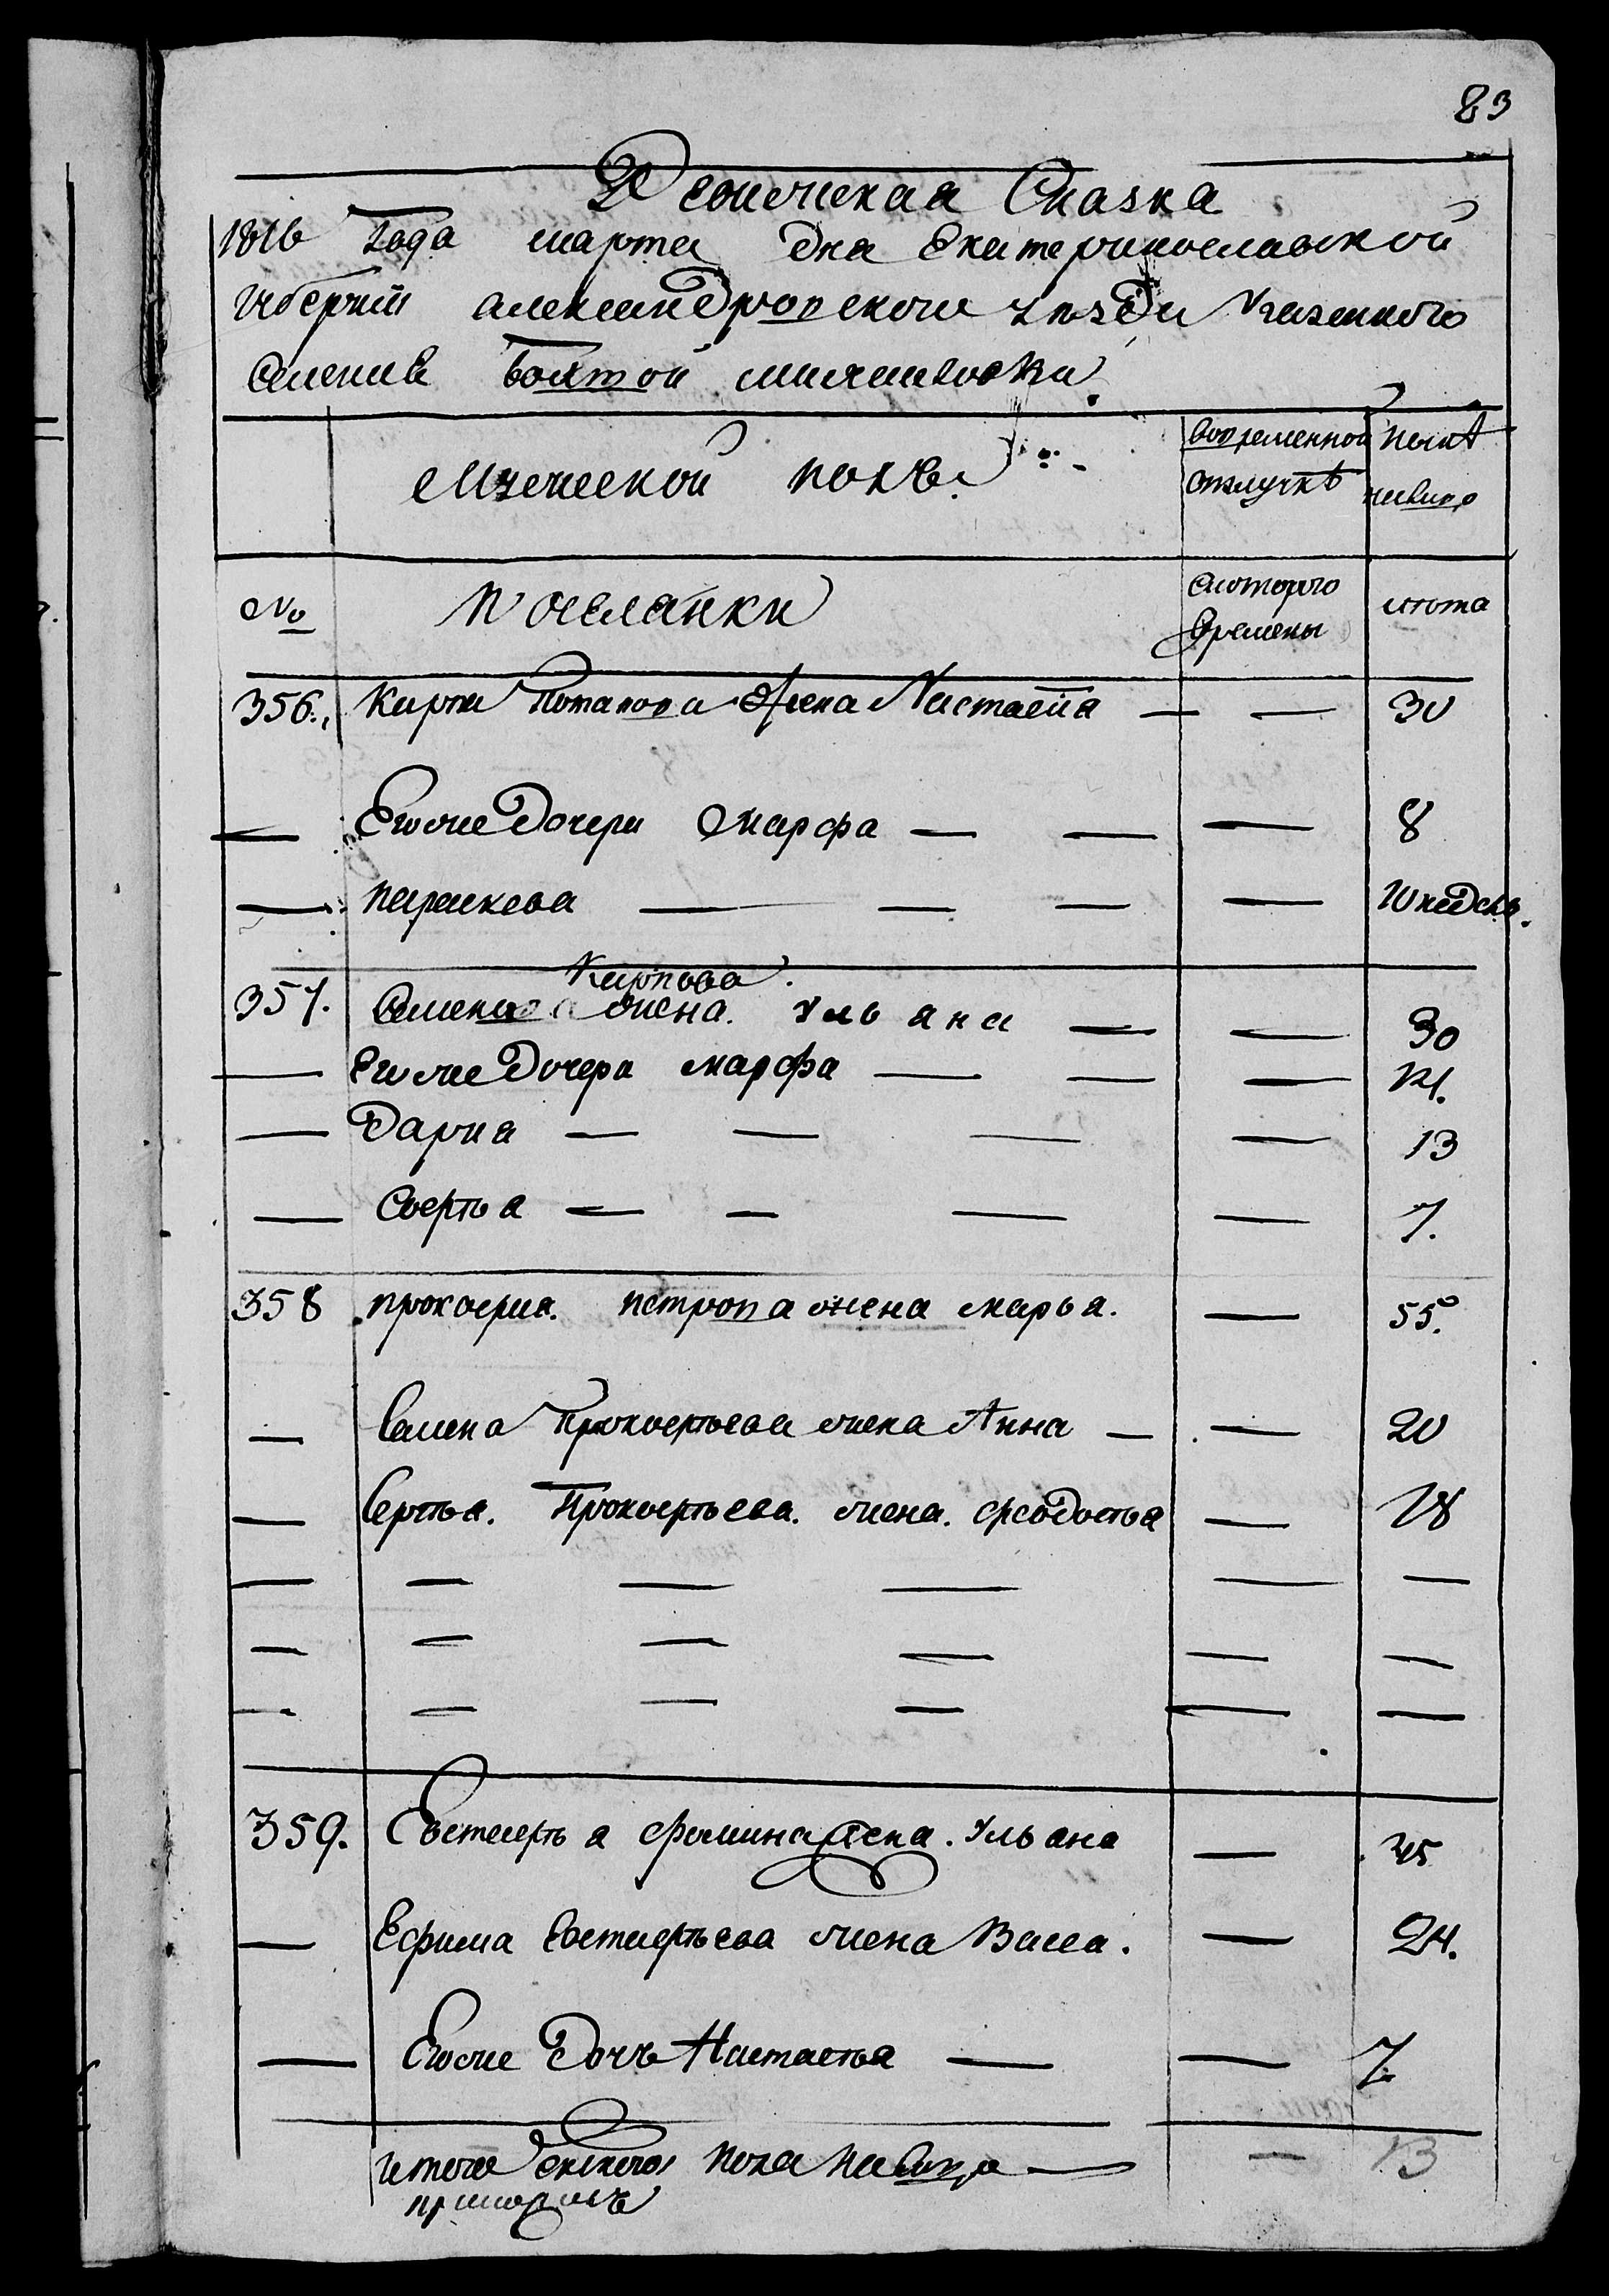 83
Ревижская Сказка
1816 Года марта дня Екатеринославской
губернии александровскаго уезда казенного
селения богатой
женской полъ
вовременной
отлучкѣ
ныне
налицо
№
Поселянки
скоторого
времены
лѣта
356. Карпа Потапова Жена Настасия — — 30
— Егоже Дочери Марфа — — — 8
— параскева — — — — 10 недель.
Карпова
357. Семена жена. Ульяна — — 30
— Егоже Дочери марфа — — — 14.
— Дария — — — — 13
— Софья — — — — 7.
358 прокофия. петрова жена марья. — 55.
— Семена Прокофьева жена Анна — — 20
— Прокофьева. жена. феодосья — 18
— — — — — —
— — — — — —
— — — — — —
359. Евстафья фомина жена. Ульяна — 45
— Ефима Евстафьева жена Васса. — 24.
— Егоже Дочь Настасья — — 7
итого женского пола налицо — — 13